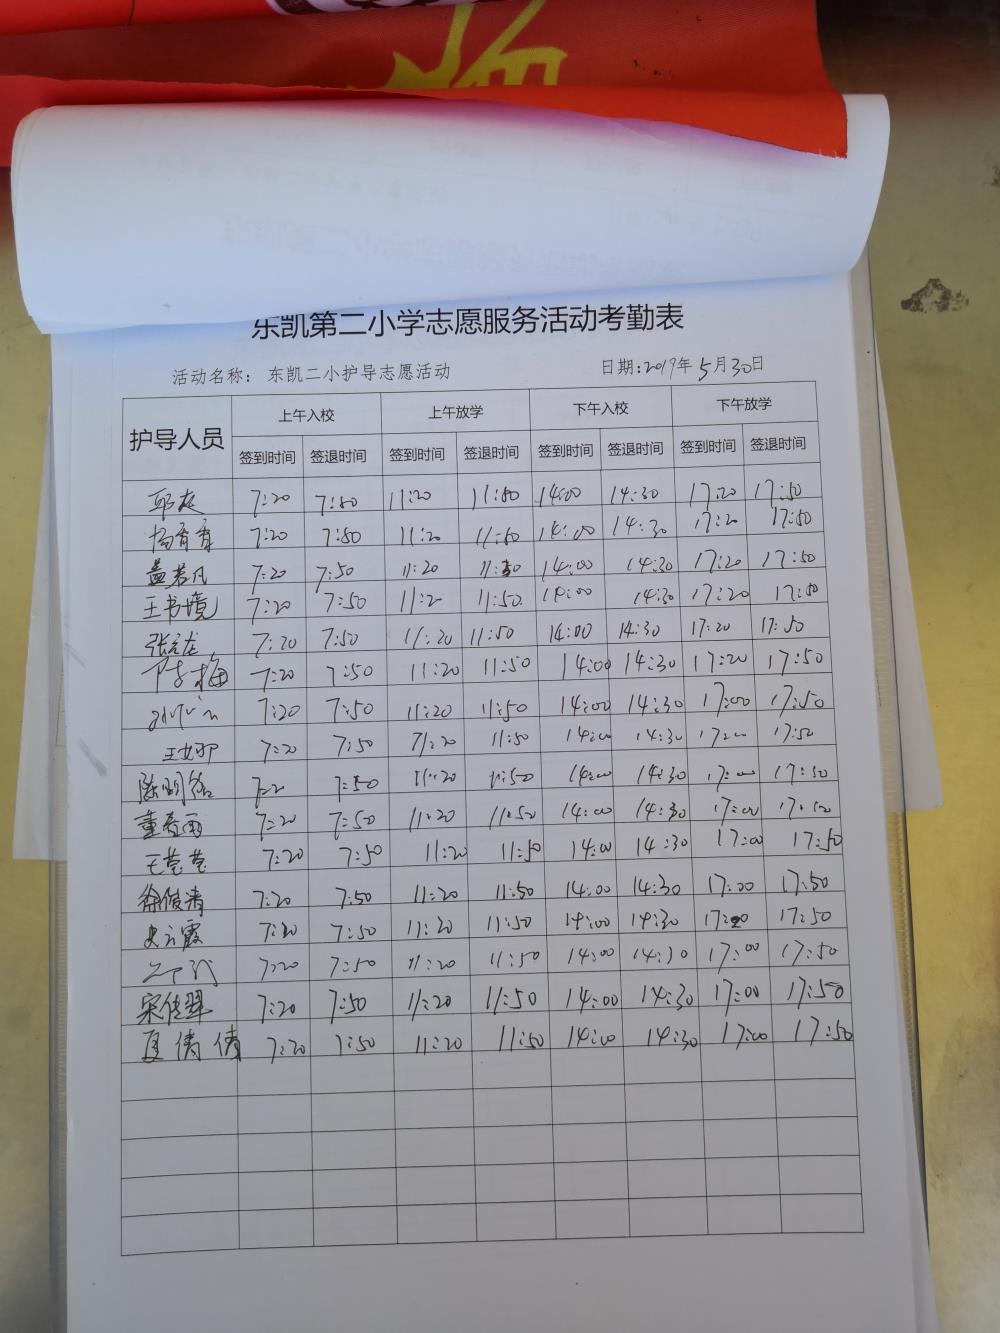 东凯第二小学志愿服务活动考勤表
活动名称: 东凯二小护导志愿活动 日期:2019年5月30日
护导人员 上午入校 上午放学 下午入校 下午放学
签到时间 签退时间 签到时间 签退时间 签到时间 签退时间 签到时间 签退时间
7:20 7:50 11:20 11:50 14:00 14:30 17:20 17:50
杨青青 7:20 7:50 11:20 11:50 14:00 14:30 17:20 17:50
孟若凡 7:20 7:50 11:20 11:50 14:00 14:30 17:20 17:50
王书境 7:20 7:50 11:2 11:50 14:00 14:30 17:20 17:50
7:20 7:50 11:20 11:50 14:00 14:30 17:20 17:50
陈李梅 7:20 7:50 11:20 11:50 14:00 14:30 17:20 17:50
7:20 7:50 11:20 11:50 14:00 14:30 17:00 17:50
7:20 7:50 11:20 11:50 14:00 14:30 17:00 17:50
7:50 11:20 11:50 14:00 14:30 17:00
董春雨 7:20 7:50 11:20 11:50 14:00 14:30 17:00
王莹莹 7:20 7:50 11:20 11:50 14:00 14:30 17:00 17:50
徐俊清 7:20 7:50 11:20 11:50 14:00 14:30 17:00 17:50
史云霞 7:20 7:50 11:20 11:50 14:00 14:30 17:20 17:50
7:20 7:50 11:20 11:50 14:00 14:30 17:00 17:50
宋传翠 7:20 7:50 11:20 11:50 14:00 14:30 17:00 17:50
夏倩倩 7:20 7:50 11:20 11:50 14:00 14:30 17:00 17:50